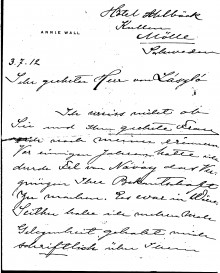 Hotel Ahlbäck
Kullen
Mölle
Schweden
ANNIE WALL
3.7.12
Sehr geehrter Herr von László
Ich weiss nicht ob
Sie und Ihre geehrte Frau
sich noch meiner erinnern
Vor einigen Jahren hatte ich
durch Frl von Navay das Ver-
gnügen Ihre Bekanntschaft
zu machen. Es war in Wien.
Seither habe ich mehrmals
Gelegenheit gehabt mich
schriftlich über Ihnen